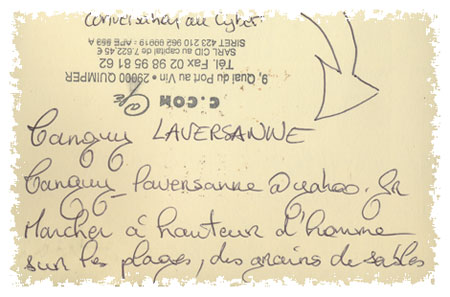 conversation au Cyber.
SIRET 423 210 962 99919 : APE 659 A
SARL CID au capital de 7.622,45 €
Tél. Fax 02 98 95 81 62
9, Quai du Port au Vin • 29000 QUIMPER
C.COM C@FE
Tanguy LAVERSANNE
Tanguy_laversanne@yahoo.fr
Marcher à hauteur d'homme
sur les plages, des grains de sables